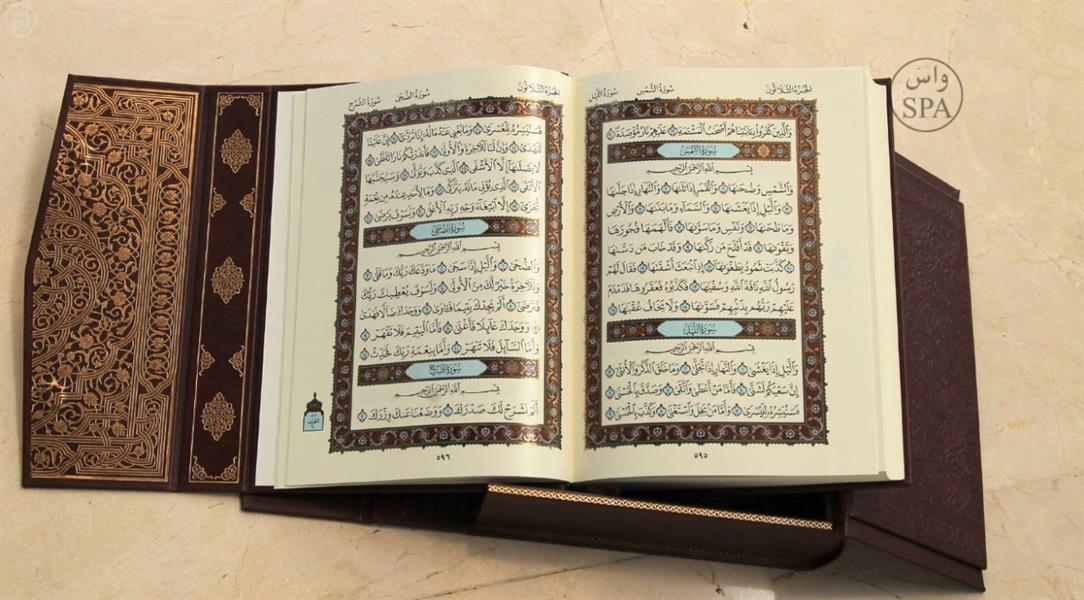 الجزء الثلاثون سورة الشمس سورة الليل
وَالَّذِينَ كَفَرُوا۟ بِـَٔايَـٰتِنَا هُمْ أَصْحَـٰبُ ٱلْمَشْـَٔمَةِ ١٩ عَلَيْهِمْ نَارٌ مُّؤْصَدَةٌۢ ٢٠
سُورَةُ الشَّمْسِ
بِسْمِ ٱللَّهِ ٱلرَّحْمَـٰنِ ٱلرَّحِيمِ
وَٱلشَّمْسِ وَضُحَىٰهَا ١ وَٱلْقَمَرِ إِذَا تَلَىٰهَا ٢ وَٱلنَّهَارِ إِذَا جَلَّىٰهَا
٣ وَٱلَّيْلِ إِذَا يَغْشَىٰهَا ٤ وَٱلسَّمَآءِ وَمَا بَنَىٰهَا ٥ وَٱلْأَرْضِ
وَمَا طَحَىٰهَا ٦ وَنَفْسٍ وَمَا سَوَّىٰهَا ٧ فَأَلْهَمَهَا فُجُورَهَا
وَتَقْوَىٰهَا ٨ قَدْ أَفْلَحَ مَن زَكَّىٰهَا ٩ وَقَدْ خَابَ مَن دَسَّىٰهَا
١٠ كَذَّبَتْ ثَمُودُ بِطَغْوَىٰهَآ ١١ إِذِ ٱنۢبَعَثَ أَشْقَىٰهَا ١٢ فَقَالَ لَهُمْ
رَسُولُ ٱللَّهِ نَاقَةَ ٱللَّهِ وَسُقْيَـٰهَا ١٣ فَكَذَّبُوهُ فَعَقَرُوهَا فَدَمْدَمَ
عَلَيْهِمْ رَبُّهُم بِذَنۢبِهِمْ فَسَوَّىٰهَا ١٤ وَلَا يَخَافُ عُقْبَـٰهَا ١٥
سُورَةُ اللَّيْلِ
بِسْمِ ٱللَّهِ ٱلرَّحْمَـٰنِ ٱلرَّحِيمِ
وَٱلَّيْلِ إِذَا يَغْشَىٰ ١ وَٱلنَّهَارِ إِذَا تَجَلَّىٰ ٢ وَمَا خَلَقَ ٱلذَّكَرَ وَٱلْأُنثَىٰٓ ٣
إِنَّ سَعْيَكُمْ لَشَتَّىٰ ٤ فَأَمَّا مَنْ أَعْطَىٰ وَٱتَّقَىٰ ٥ وَصَدَّقَ بِٱلْحُسْنَىٰ ٦
فَسَنُيَسِّرُهُۥ لِلْيُسْرَىٰ ٧ وَأَمَّا مَنۢ بَخِلَ وَٱسْتَغْنَىٰ ٨ وَكَذَّبَ بِٱلْحُسْنَىٰ ٩
٥٩٥
الجزء الثلاثون سورة الضحى سورة الشرح
فَسَنُيَسِّرُهُۥ لِلْعُسْرَىٰ ١٠ وَمَا يُغْنِى عَنْهُ مَالُهُۥٓ إِذَا تَرَدَّىٰٓ ١١ إِنَّ عَلَيْنَا
لَلْهُدَىٰ ١٢ وَإِنَّ لَنَا لَلْـَٔاخِرَةَ وَٱلْأُولَىٰ ١٣ فَأَنذَرْتُكُمْ نَارًا تَلَظَّىٰ ١٤
لَا يَصْلَىٰهَآ إِلَّا ٱلْأَشْقَى ١٥ ٱلَّذِى كَذَّبَ وَتَوَلَّىٰ ١٦ وَسَيُجَنَّبُهَا
ٱلْأَتْقَى ١٧ ٱلَّذِى يُؤْتِى مَالَهُۥ يَتَزَكَّىٰ ١٨ وَمَا لِأَحَدٍ عِندَهُۥ مِن نِّعْمَةٍ
تُجْزَىٰٓ ١٩ إِلَّا ٱبْتِغَآءَ وَجْهِ رَبِّهِ ٱلْأَعْلَىٰ ٢٠ وَلَسَوْفَ يَرْضَىٰ ٢١
سُورَةُ الضُّحَىٰ
بِسْمِ ٱللَّهِ ٱلرَّحْمَـٰنِ ٱلرَّحِيمِ
وَٱلضُّحَىٰ ١ وَٱلَّيْلِ إِذَا سَجَىٰ ٢ مَا وَدَّعَكَ رَبُّكَ وَمَا قَلَىٰ
٣ وَلَلْـَٔاخِرَةُ خَيْرٌ لَّكَ مِنَ ٱلْأُولَىٰ ٤ وَلَسَوْفَ يُعْطِيكَ رَبُّكَ
فَتَرْضَىٰٓ ٥ أَلَمْ يَجِدْكَ يَتِيمًا فَـَٔاوَىٰ ٦ وَوَجَدَكَ ضَآلًّا فَهَدَىٰ
٧ وَوَجَدَكَ عَآئِلًا فَأَغْنَىٰ ٨ فَأَمَّا ٱلْيَتِيمَ فَلَا تَقْهَرْ ٩
وَأَمَّا ٱلسَّآئِلَ فَلَا تَنْهَرْ ١٠ وَأَمَّا بِنِعْمَةِ رَبِّكَ فَحَدِّثْ ١١
سُورَةُ الشَّرْحِ
بِسْمِ ٱللَّهِ ٱلرَّحْمَـٰنِ ٱلرَّحِيمِ
أَلَمْ نَشْرَحْ لَكَ صَدْرَكَ ١ وَوَضَعْنَا عَنكَ وِزْرَكَ ٢
٥٩٦
واس
SPA